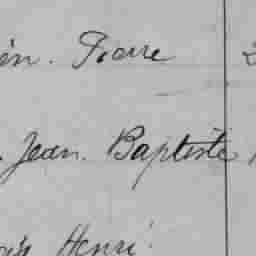 Pierre
Jean. Baptiste
Henri